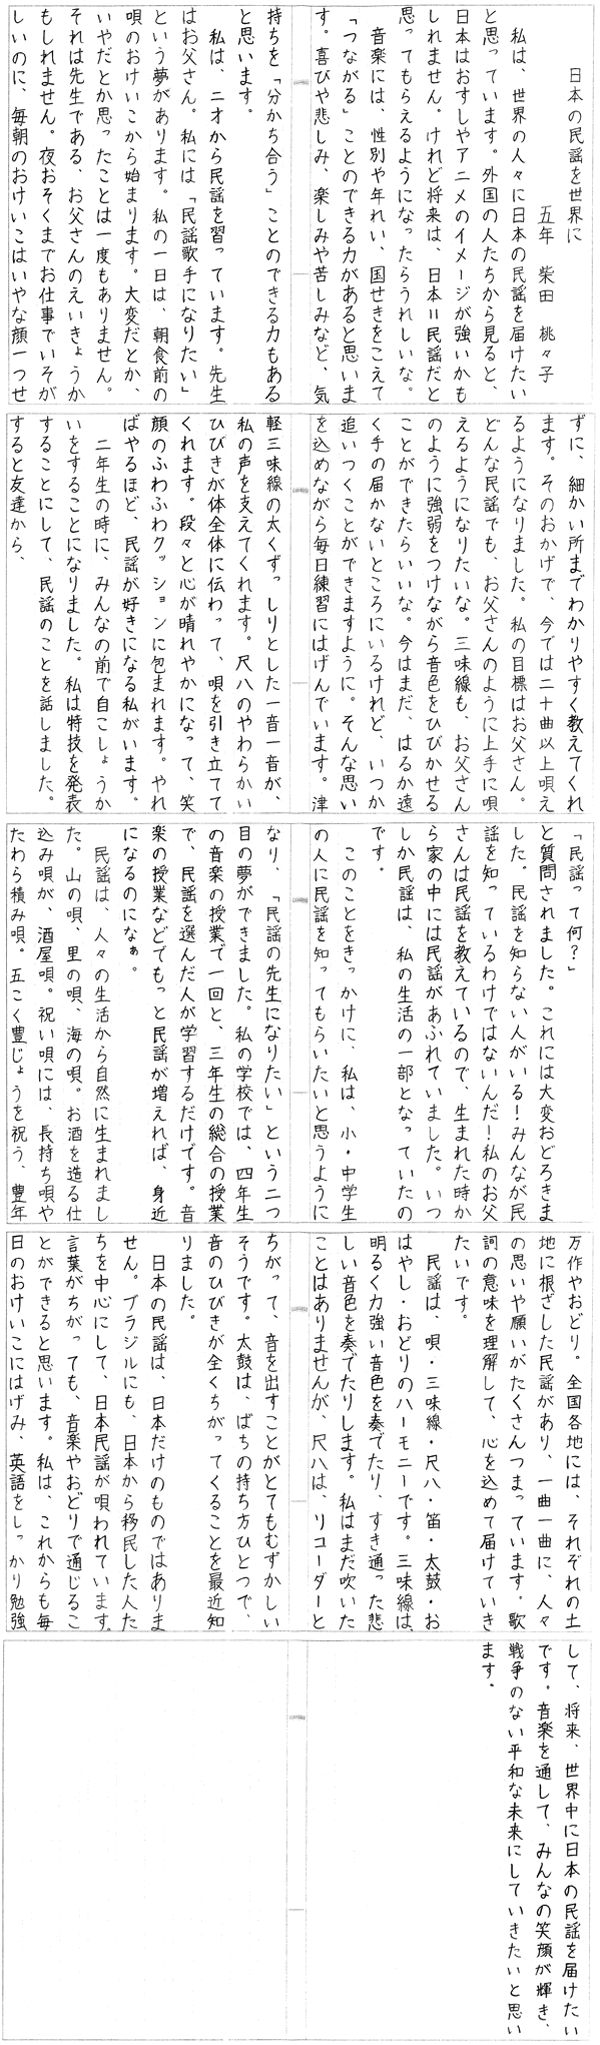 日本の民謡を世界に
五年　柴田　桃々子
　私は、世界の人々に日本の民謡を届けたい
と思っています。外国の人たちから見ると、
日本はおすしやアニメのイメージが強いかも
しれません。けれど将来は、日本＝民謡だと
思ってもらえるようになったらうれしいな。
　音楽には、性別や年れい、国せきをこえて
「つながる」ことのできる力があると思いま
す。喜びや悲しみ、楽しみや苦しみなど、気
持ちを「分かち合う」ことのできる力もある
と思います。
　私は、二才から民謡を習っています。先生
はお父さん。私には「民謡歌手になりたい」
という夢があります。私の一日は、朝食前の
唄のおけいこから始まります。大変だとか、
いやだとか思ったことは一度もありません。
それは先生である、お父さんのえいきょうか
もしれません。夜おそくまでお仕事でいそが
しいのに、毎朝のおけいこはいやな顔一つせ
ずに、細かい所までわかりやすく教えてくれ
ます。そのおかげで、今では二十曲以上唄え
るようになりました。私の目標はお父さん。
どんな民謡でも、お父さんのように上手に唄
えるようになりたいな。三味線も、お父さん
のように強弱をつけながら音色をひびかせる
ことができたらいいな。今はまだ、はるか遠
く手の届かないところにいるけれど、いつか
追いつくことができますように。そんな思い
を込めながら毎日練習にはげんでいます。津
軽三味線の太くずっしりとした一音一音が、
私の声を支えてくれます。尺八のやわらかい
ひびきが体全体に伝わって、唄を引き立てて
くれます。段々と心が晴れやかになって、笑
顔のふわふわクッションに包まれます。やれ
ばやるほど、民謡が好きになる私がいます。
　二年生の時に、みんなの前で自こしょうか
いをすることになりました。私は特技を発表
することにして、民謡のことを話しました。
すると友達から、
「民謡って何？」
と質問されました。これには大変おどろきま
した。民謡を知らない人がいる！みんなが民
謡を知っているわけではないんだ！私のお父
さんは民謡を教えているので、生まれた時か
ら家の中には民謡があふれていました。いつ
しか民謡は、私の生活の一部となっていたの
です。
　このことをきっかけに、私は、小・中学生
の人に民謡を知ってもらいたいと思うように
なり、「民謡の先生になりたい」という二つ
目の夢ができました。私の学校では、四年生
の音楽の授業で一回と、三年生の総合の授業
で、民謡を選んだ人が学習するだけです。音
楽の授業などでもっと民謡が増えれば、身近
になるのになぁ。
　民謡は、人々の生活から自然に生まれまし
た。山の唄、里の唄、海の唄。お酒を造る仕
込み唄が、酒屋唄。祝い唄には、長持ち唄や
たわら積み唄。五こく豊じょうを祝う、豊年
万作やおどり。全国各地には、それぞれの土
地に根ざした民謡があり、一曲一曲に、人々
の思いや願いがたくさんつまっています。歌
詞の意味を理解して、心を込めて届けていき
たいです。
　民謡は、唄・三味線・尺八・笛・太鼓・お
はやし・おどりのハーモニーです。三味線は、
明るく力強い音色を奏でたり、すき通った悲
しい音色を奏でたりします。私はまだ吹いた
ことはありませんが、尺八は、リコーダーと
ちがって、音を出すことがとてもむずかしい
そうです。太鼓は、ばちの持ち方ひとつで、
音のひびきが全くちがってくることを最近知
りました。
　日本の民謡は、日本だけのものではありま
せん。ブラジルにも、日本から移民した人た
ちを中心にして、日本民謡が唄われています。
言葉がちがっても、音楽やおどりで通じるこ
とができると思います。私は、これからも毎
日のおけいこにはげみ、英語をしっかり勉強
して、将来、世界中に日本の民謡を届けたい
です。音楽を通して、みんなの笑顔が輝き、
戦争のない平和な未来にしていきたいと思い
ます。